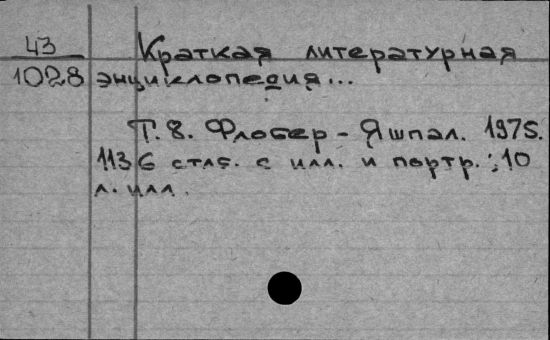 43
1028
Краткая литературная
энциклопедия...
Т. 8. Флобер - Яшпал. 1975.
1136 стлб. с илл. и портр.; 10
л. илл.